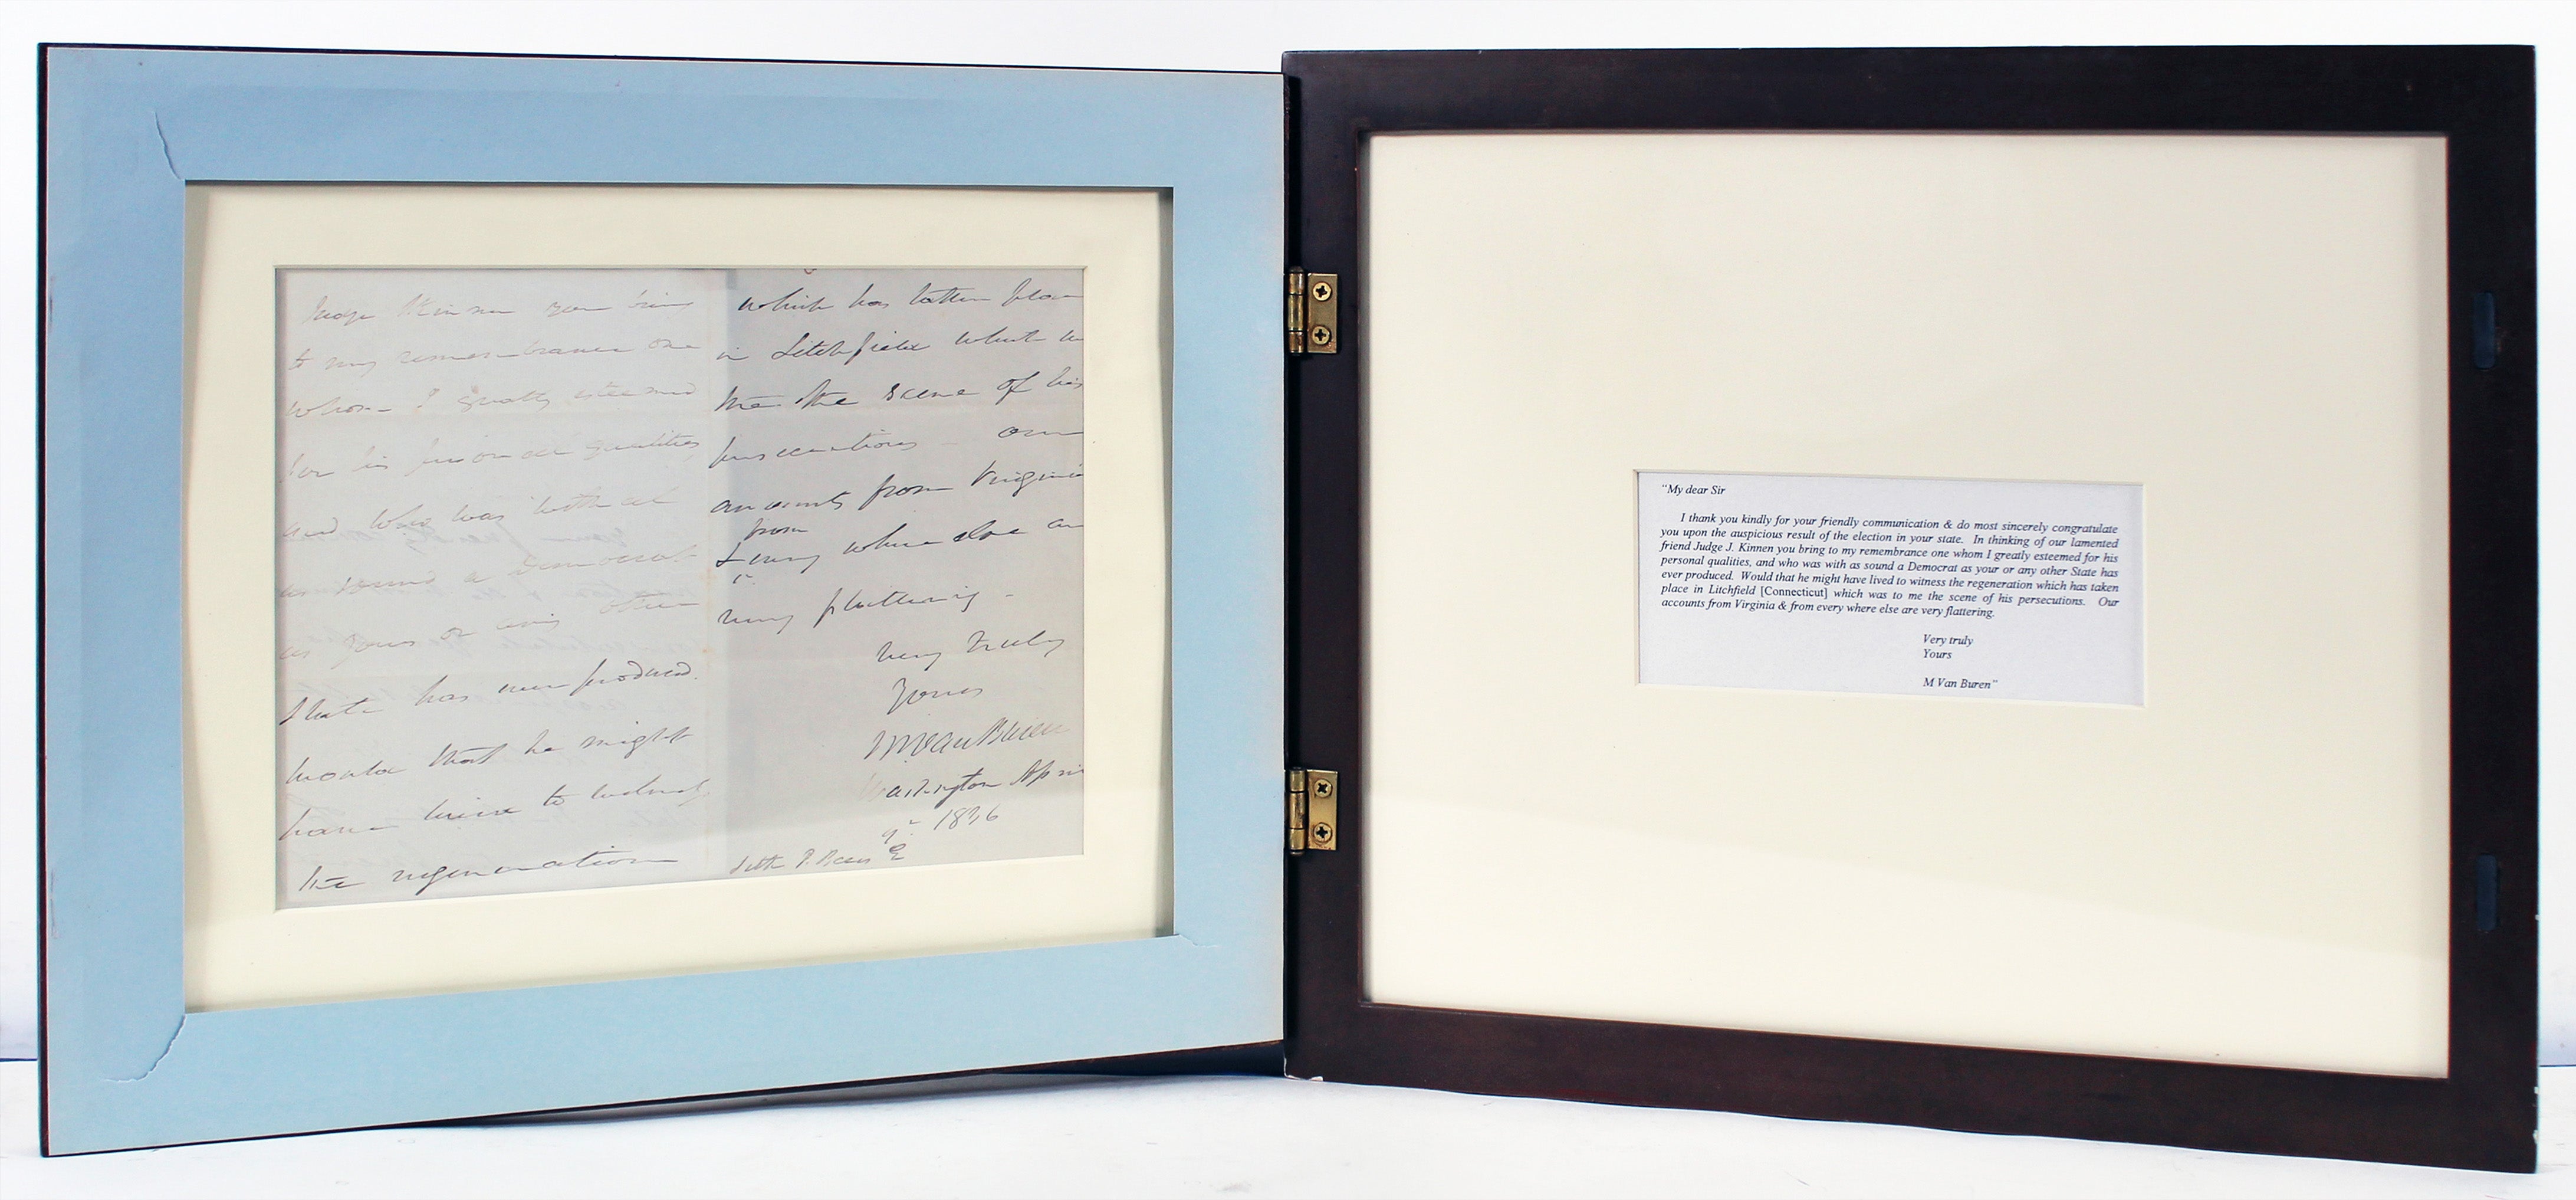 Judge Kinnen you bring
to my remembrance one
whom I greatly esteemed
for his personal qualities
and who was with al
as sound a Democrat
as yours or any other
State has ever produced.
Would that he might
have lived to witness
the regeneration
which has taken place
in Litchfield which w
the scene of his
persecutions - Our
accounts from Virginia
from
& every where else are
very flattering -
Very truly
Yours
M Van Buren
Washington April
9th 1836
"My dear Sir
I thank you kindly for your friendly communication & do most sincerely congratulate
you upon the auspicious result of the election in your state. In thinking of our lamented
friend Judge J. Kinnen you bring to my remembrance one whom I greatly esteemed for his
personal qualities, and who was with as sound a Democrat as your or any other State has
ever produced. Would that he might have lived to witness the regeneration which has taken
place in Litchfield [Connecticut] which was to me the scene of his persecutions. Our
accounts from Virginia & from every where else are very flattering.
Very truly
Yours
M Van Buren"